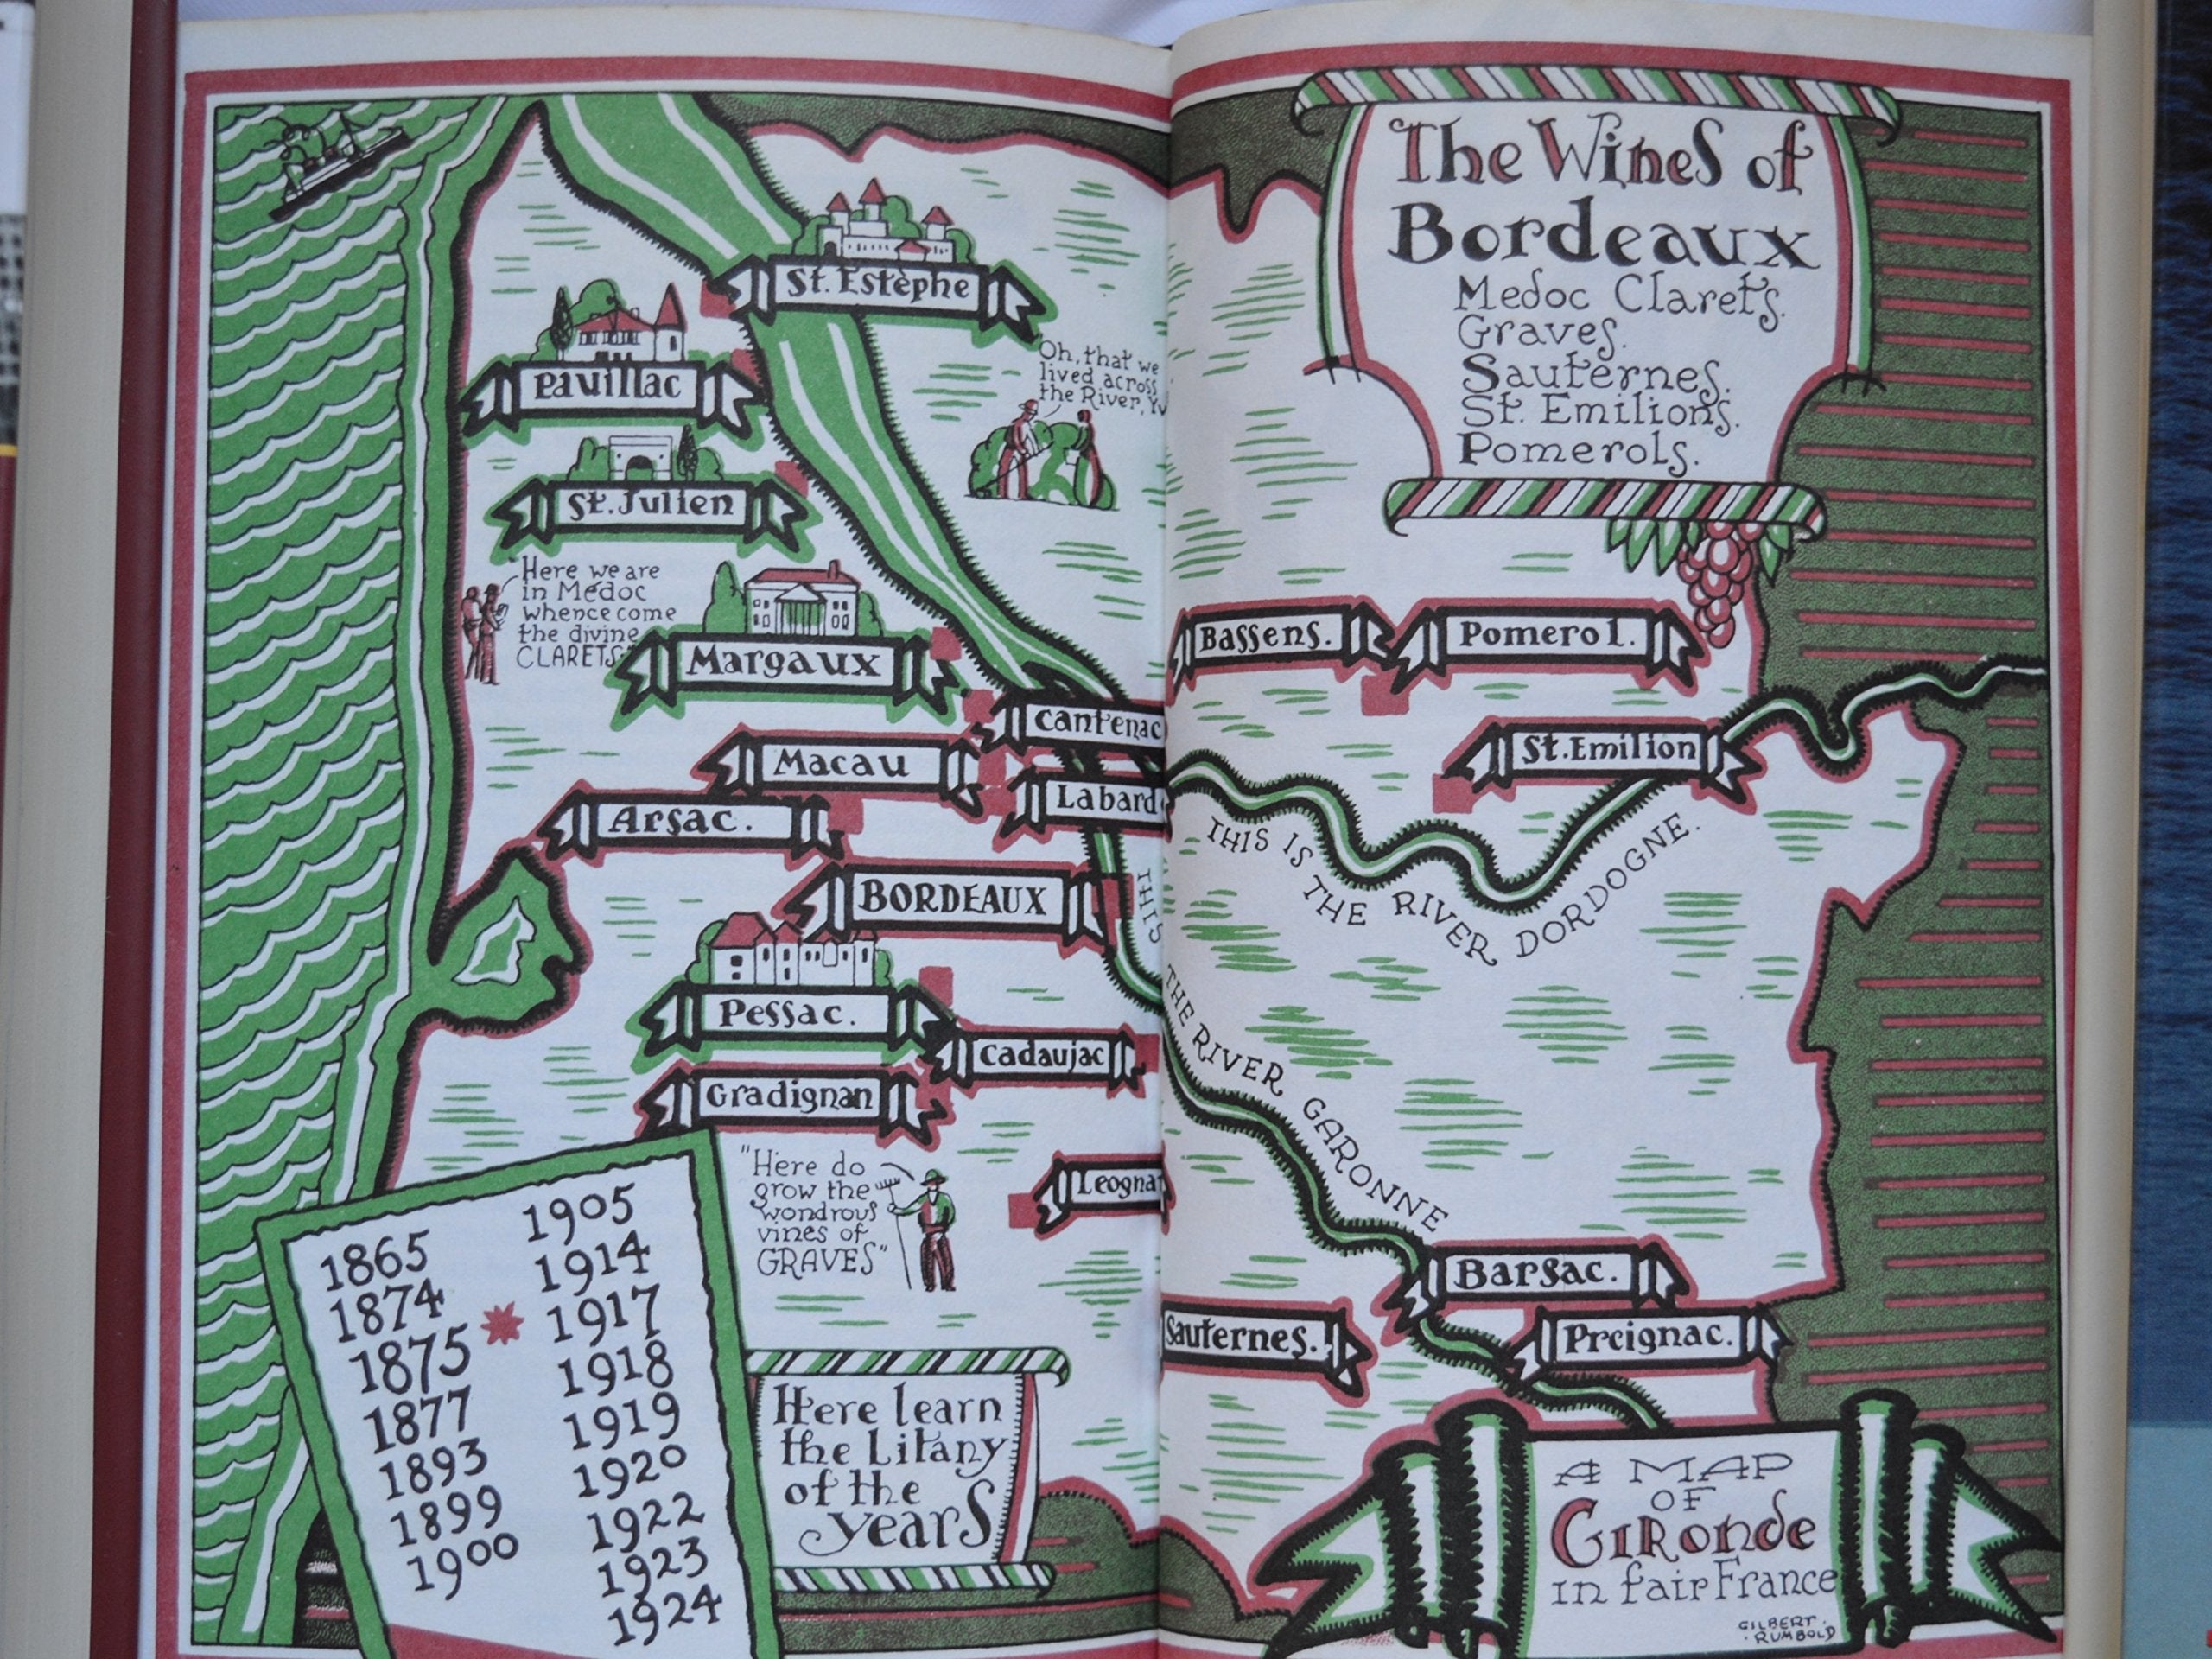 The Wines of
Bordeaux
Medoc Clarets.
Graves.
Sauternes.
St. Emilions.
Pomerols.
St. Estèphe
Pauillac
St. Julien
Oh, that we
lived across
the River,
"Here we are
in Médoc
whence come
the divine
CLARETS"
Margaux
Cantenac
Macau
Labard
Arsac.
BORDEAUX
Pessac.
Cadaujac
Gradignan
Leogna
Bassens.
Pomerol.
St. Emilion
THIS IS THE RIVER DORDOGNE.
THIS
THE RIVER GARONNE
Barsac.
Sauternes.
Preignac.
"Here do
grow the
wondrous
vines of
GRAVES"
1865
1874
1875
1877
1893
1899
1900
1905
1914
1917
1918
1919
1920
1922
1923
1924
Here learn
the Litany
of the
years
A MAP
OF
GIRonde
in fair France
GILBERT.
.RUMBOLD